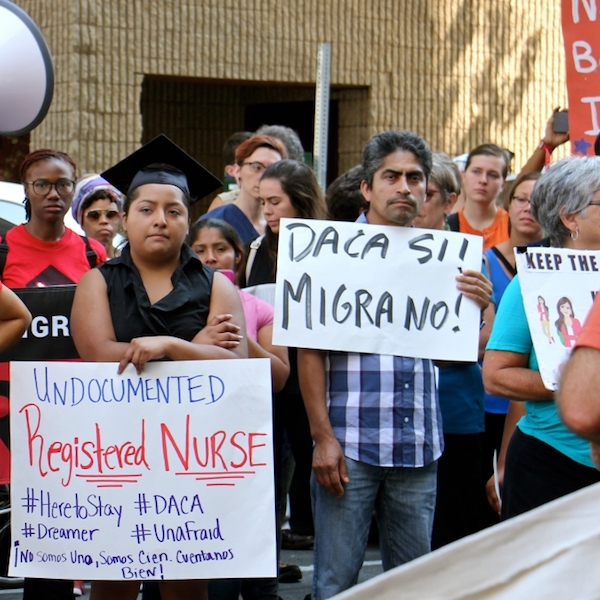 UNDOCUMENTED
Registered NURSE
#HeretoStay #DACA
#Dreamer #UnAfraid
¡No Somos Una, Somos Cien. Cuentanos
Bien!
DACA SI!
MIGRA NO!
KEEP THE
IGR
N
B
I